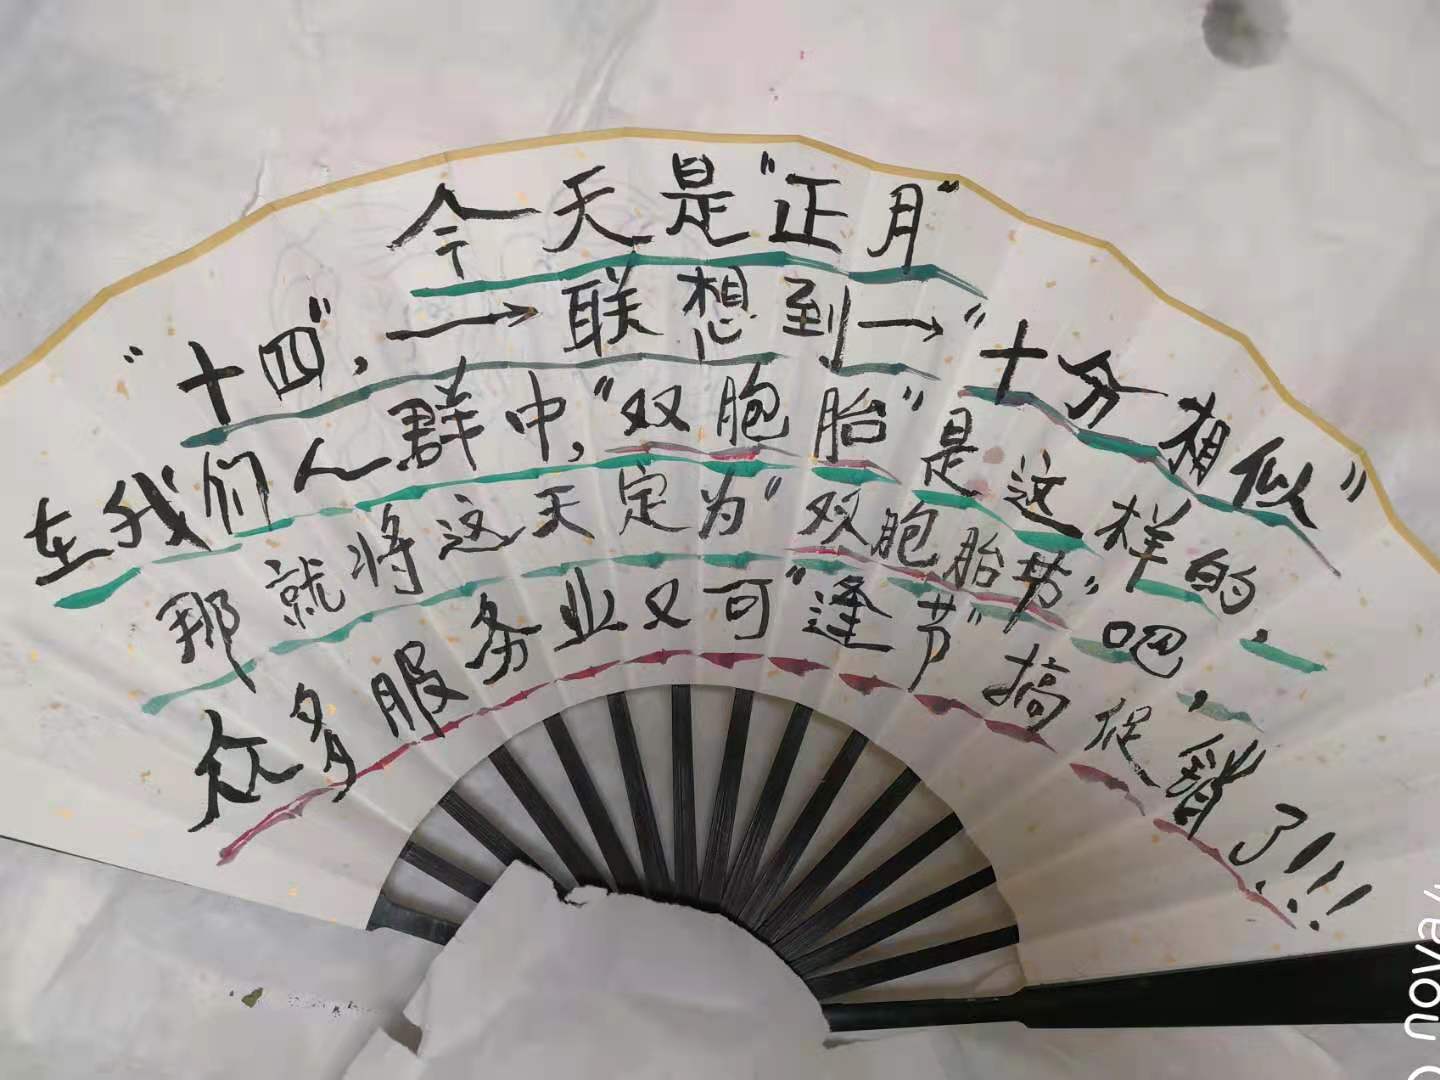 今天是"正月"
"十四",→联想到→"十分相似"
在我们人群中,"双胞胎"是这样的,
那就将这天定为"双胞胎节"吧,
众多服务业又可"逢节"搞促销了!!!
nova